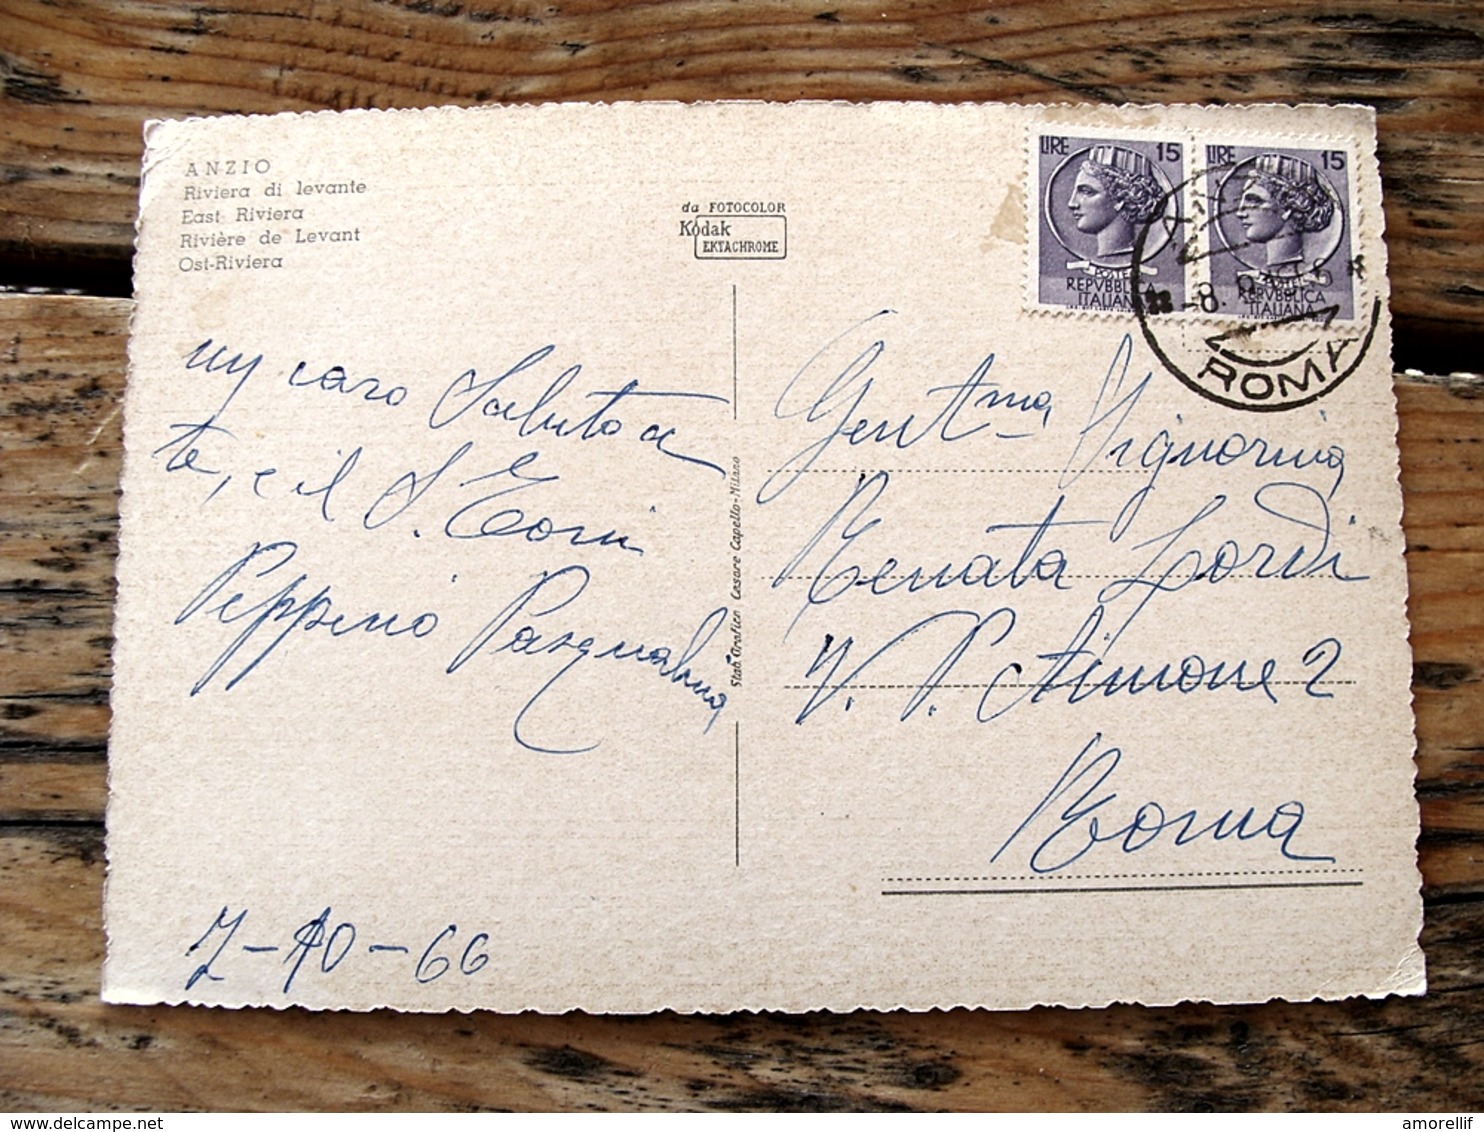 ANZIO
Riviera di levante
East Riviera
Rivière de Levant
Ost-Riviera
da FOTOCOLOR
Kodak
EKTACHROME
LIRE 15
POSTE
REPVBBLICA
ITALIANA
LIRE 15
REPVBBLICA
ITALIANA
ROMA
un caro Saluto a
te, e il S. Toni
Peppino Pasqualino
Stab. Grafico Cesare Capello-Milano
Gent.ma Signorina
Renata Lordi
V. P. Aimone 2
Roma
7-10-66
amorellif